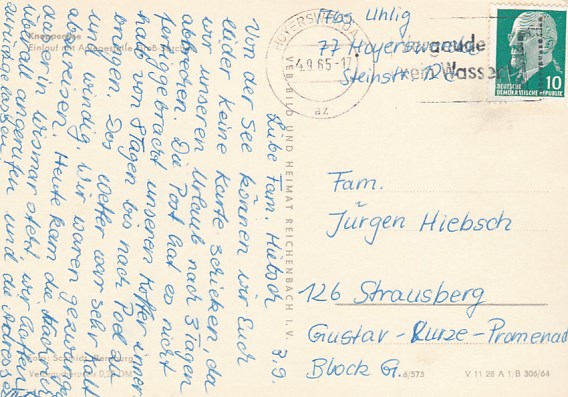 Knappensee
Einlauf mit Anlegestelle Groß-Särchen
3. 9.
Liebe Fam. Hiebsch
Von der See können wir Euch
leider keine Karte schicken, da
wir unseren Urlaub nach 3 Tagen
abbrechen. Die Post hat es nicht
fertiggebracht unseren Koffer inner-
halb von 8 Tagen bis nach Poel zu
bringen. Das Wetter war sehr kalt
und windig. Wir waren gezwungen
abzureisen. Heute kam die Nachricht
daß er in Wismar steht. Wir hatten
überall angerufen und die Adresse
zurückgelassen.
Foto:
Verbraucherpreis 0,20 DM
VEB BILD UND HEIMAT REICHENBACH I. V.
Uhlig
77 Hoyerswerda
Steinstr.
HOYERSWERDA
-4.9.65-17
az
10
DEUTSCHE
DEMOKRATISCHE REPUBLIK
Fam.
Jürgen Hiebsch
126 Strausberg
Gustav-Kurze-Promenade
Block G.
6/573
V 11 28 A 1/B 306/64